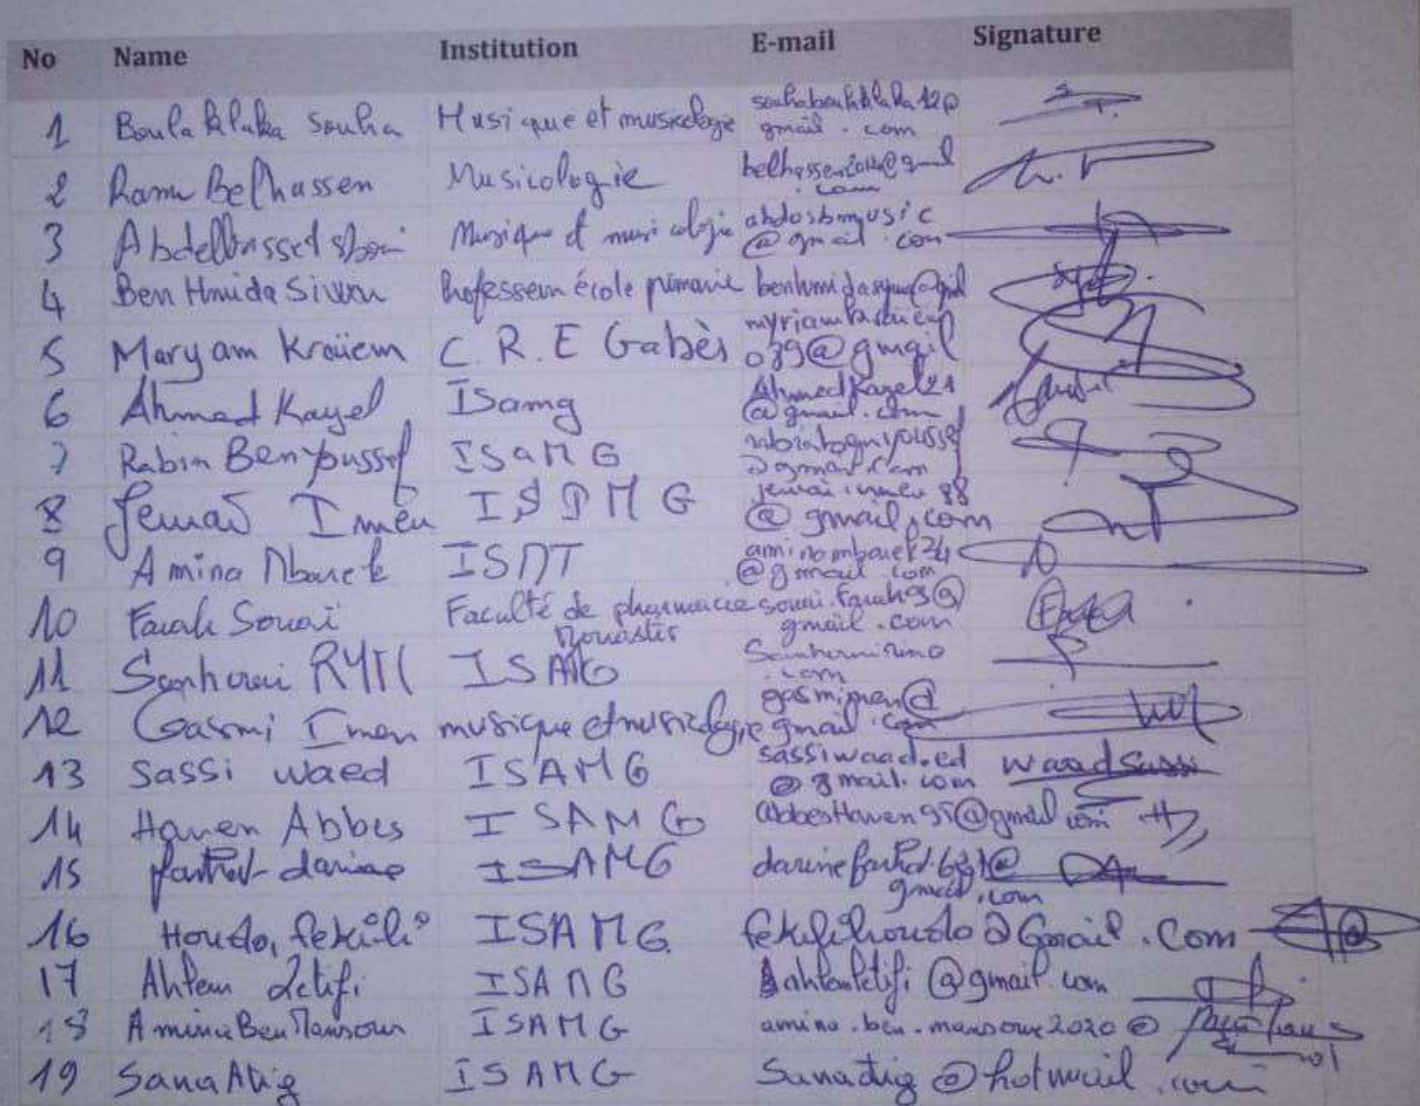 No Name Institution E-mail Signature
1 Boulaklaka Souha Musique et musicologie souhaboulaklaka12@
gmail.com
2 Belhassen Musicologie belhassen2012@gmail
.com
3 Abdelbasset sboui Musique et musicologie abdosbmusic
@gmail.com
4 Ben Hmida Professeur école primaire
5 Maryam Kraïem C.R.E Gabès
039@gmail
6 Ahmed Kayel ISamg Ahmedkayel21
@gmail.com
7 Rabia Ben youssef ISAMG
@gmail.com
8 Jemai Imen jemai.imen 88
@gmail.com
9 Amina Mbarek amina mbarek24
@gmail.com
10 Farah Souai Faculté de pharmacie souai.farah93@
Monastir gmail.com
11 RYM ISAMG
.com
12 Gasmi Imen musique et musicologie gasmimen@
gmail.com
13 Sassi waed ISAMG sassiwaad.ed waad Sassi
@gmail.com
14 Hanen Abbes ISAMG abbesHanen95@gmail com
15 farhat darine ISAMG
gmail.com
16 Houda, fekihi ISAMG fekihihouda@Gmail.Com
17 Ahlem Letifi ISAMG ahlemletifi@gmail.com
18 Amina Ben Mansour ISAMG amina.ben.mansour2020@
19 Sana Atig ISAMG Sanaatig@hotmail.com